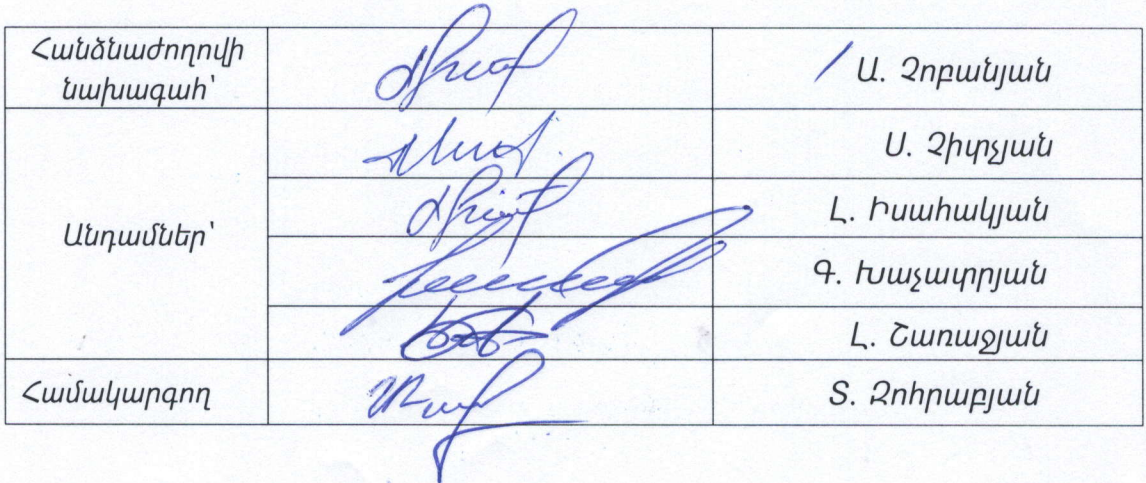 Հանձնաժողովի
նախագահ՝
Ա. Չոբանյան
Ս. Չիտչյան
Անդամներ՝
Լ. Իսահակյան
Գ. Խաչատրյան
Լ. Շառաջյան
Համակարգող
Տ. Զոհրաբյան